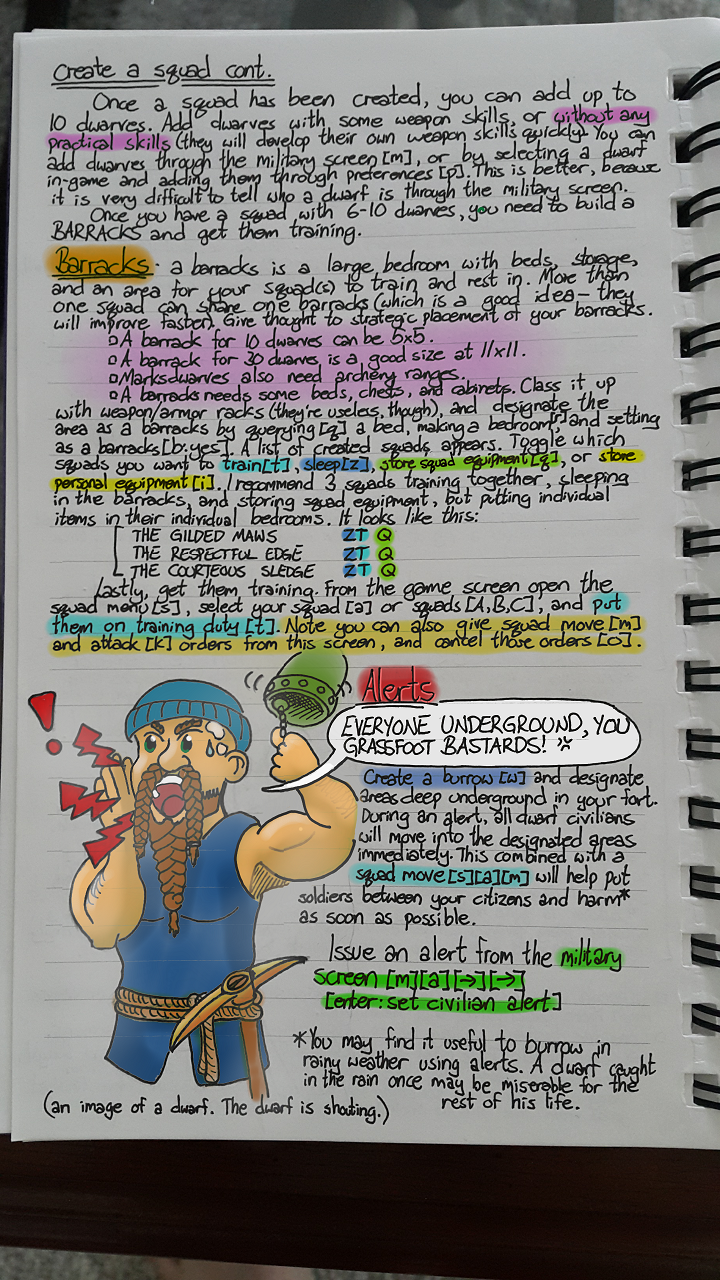 Create a squad cont.
Once a squad has been created, you can add up to
10 dwarves. Add dwarves with some weapon skills, or without any
practical skills (they will develop their own weapon skills quickly). You can
add dwarves through the military screen [m], or by selecting a dwarf
in-game and adding them through preferences [p]. This is better, because
it is very difficult to tell who a dwarf is through the military screen.
Once you have a squad with 6-10 dwarves, you need to build a
BARRACKS and get them training.
Barracks - a barracks is a large bedroom with beds, storage,
and an area for your squad(s) to train and rest in. More than
one squad can share one barracks (which is a good idea - they
will improve faster). Give thought to strategic placement of your barracks.
▫ A barrack for 10 dwarves can be 5x5.
▫ A barrack for 30 dwarves is a good size at 11x11.
▫ Marksdwarves also need archery ranges.
▫ A barracks needs some beds, chests, and cabinets. Class it up
with weapon/armor racks (they're useless, though), and designate the
area as a barracks by querying [q] a bed, making a bedroom [r] and setting
as a barracks [b:yes]. A list of created squads appears. Toggle which
squads you want to train[t], sleep[z], store squad equipment[q], or store
personal equipment[i]. I recommend 3 squads training together, sleeping
in the barracks, and storing squad equipment, but putting individual
items in their individual bedrooms. It looks like this:
THE GILDED MAWS ZT Q
THE RESPECTFUL EDGE ZT Q
THE COURTEOUS SLEDGE ZT Q
Lastly, get them training. From the game screen open the
squad menu [s], select your squad [a] or squads [A,B,C], and put
them on training duty [t]. Note you can also give squad move [m]
and attack [k] orders from this screen, and cancel those orders [o].
Alerts
EVERYONE UNDERGROUND, YOU
GRASSFOOT BASTARDS! *
Create a burrow [w] and designate
areas deep underground in your fort.
During an alert, all dwarf civilians
will move into the designated areas
immediately. This combined with a
squad move [s][a][m] will help put
soldiers between your citizens and harm*
as soon as possible.
Issue an alert from the military
screen [m][a][→][→]
[enter: set civilian alert]
*You may find it useful to burrow in
rainy weather using alerts. A dwarf caught
in the rain once may be miserable for the
rest of his life.
(an image of a dwarf. The dwarf is shouting.)